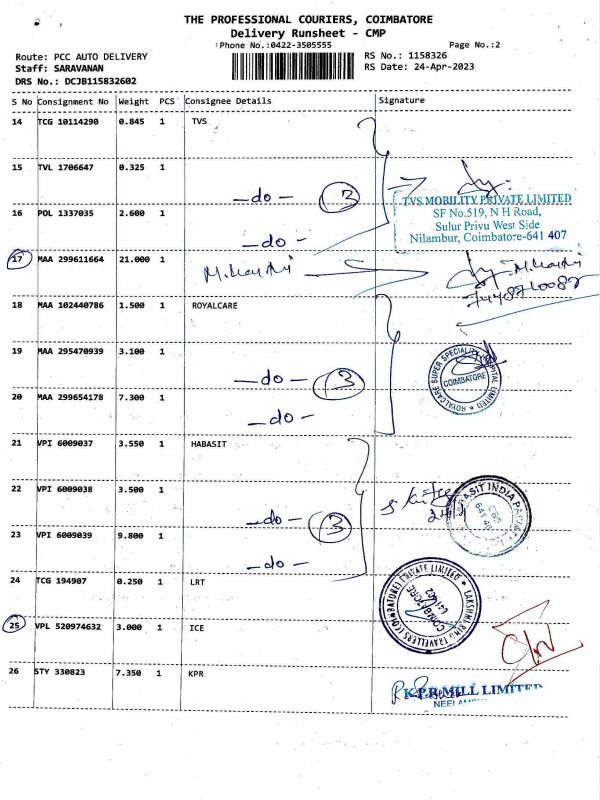 THE PROFESSIONAL COURIERS, COIMBATORE
Delivery Runsheet - CMP
Phone No.:0422-3505555 Page No.:2
Route: PCC AUTO DELIVERY RS No.: 1158326
Staff: SARAVANAN RS Date: 24-Apr-2023
DRS No.: DCJB115832602
S No Consignment No Weight PCS Consignee Details Signature
14 TCG 10114290 0.845 1 TVS
15 TVL 1706647 0.325 1
- do - 3
TVS MOBILITY PRIVATE LIMITED
SF No.519, N H Road,
Sulur Privu West Side
Nilambur, Coimbatore-641 407
16 POL 1337035 2.600 1
- do -
17 MAA 299611664 21.000 1
18 MAA 102440786 1.500 1 ROYALCARE
19 MAA 295470939 3.100 1
- do - 3
ROYALCARE SUPER SPECIALITY HOSPITAL LIMITED
COIMBATORE
20 MAA 299654178 7.300 1
- do -
21 VPI 6009037 3.550 1 HABASIT
22 VPI 6009038 3.500 1
- do - 3
23 VPI 6009039 9.800 1
- do -
24 TCG 194907 0.250 1 LRT
25 VPL 520974632 3.000 1 ICE
26 STY 330823 7.350 1 KPR
K.P.R MILL LIMITED